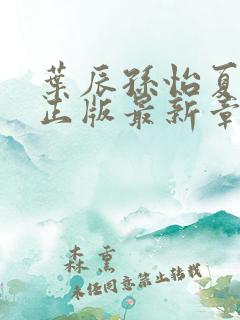 葉辰孫怡夏
正版最新章
森熏
未经同意禁止转载